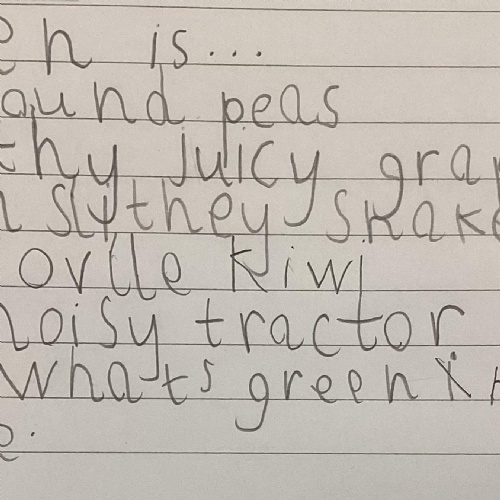 en is...
ound peas
thy juicy grap
slythey snake
ovlle kiwi
noisy tractor
whats green in
e.